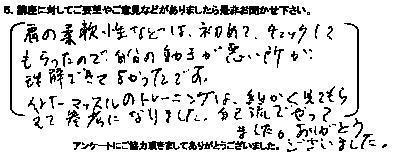 5. 講座に対してご要望やご意見などがありましたら是非お聞かせ下さい。
肩の柔軟性などは、初めて、チェックして
もらったので、自分の動きが悪い所が
理解できてよかったです。
インナーマッスルのトレーニングは、細かく見てもら
えて参考になりました。自己流でやって
ました。ありがとう
ございました。
アンケートにご協力頂きましてありがとうございました。